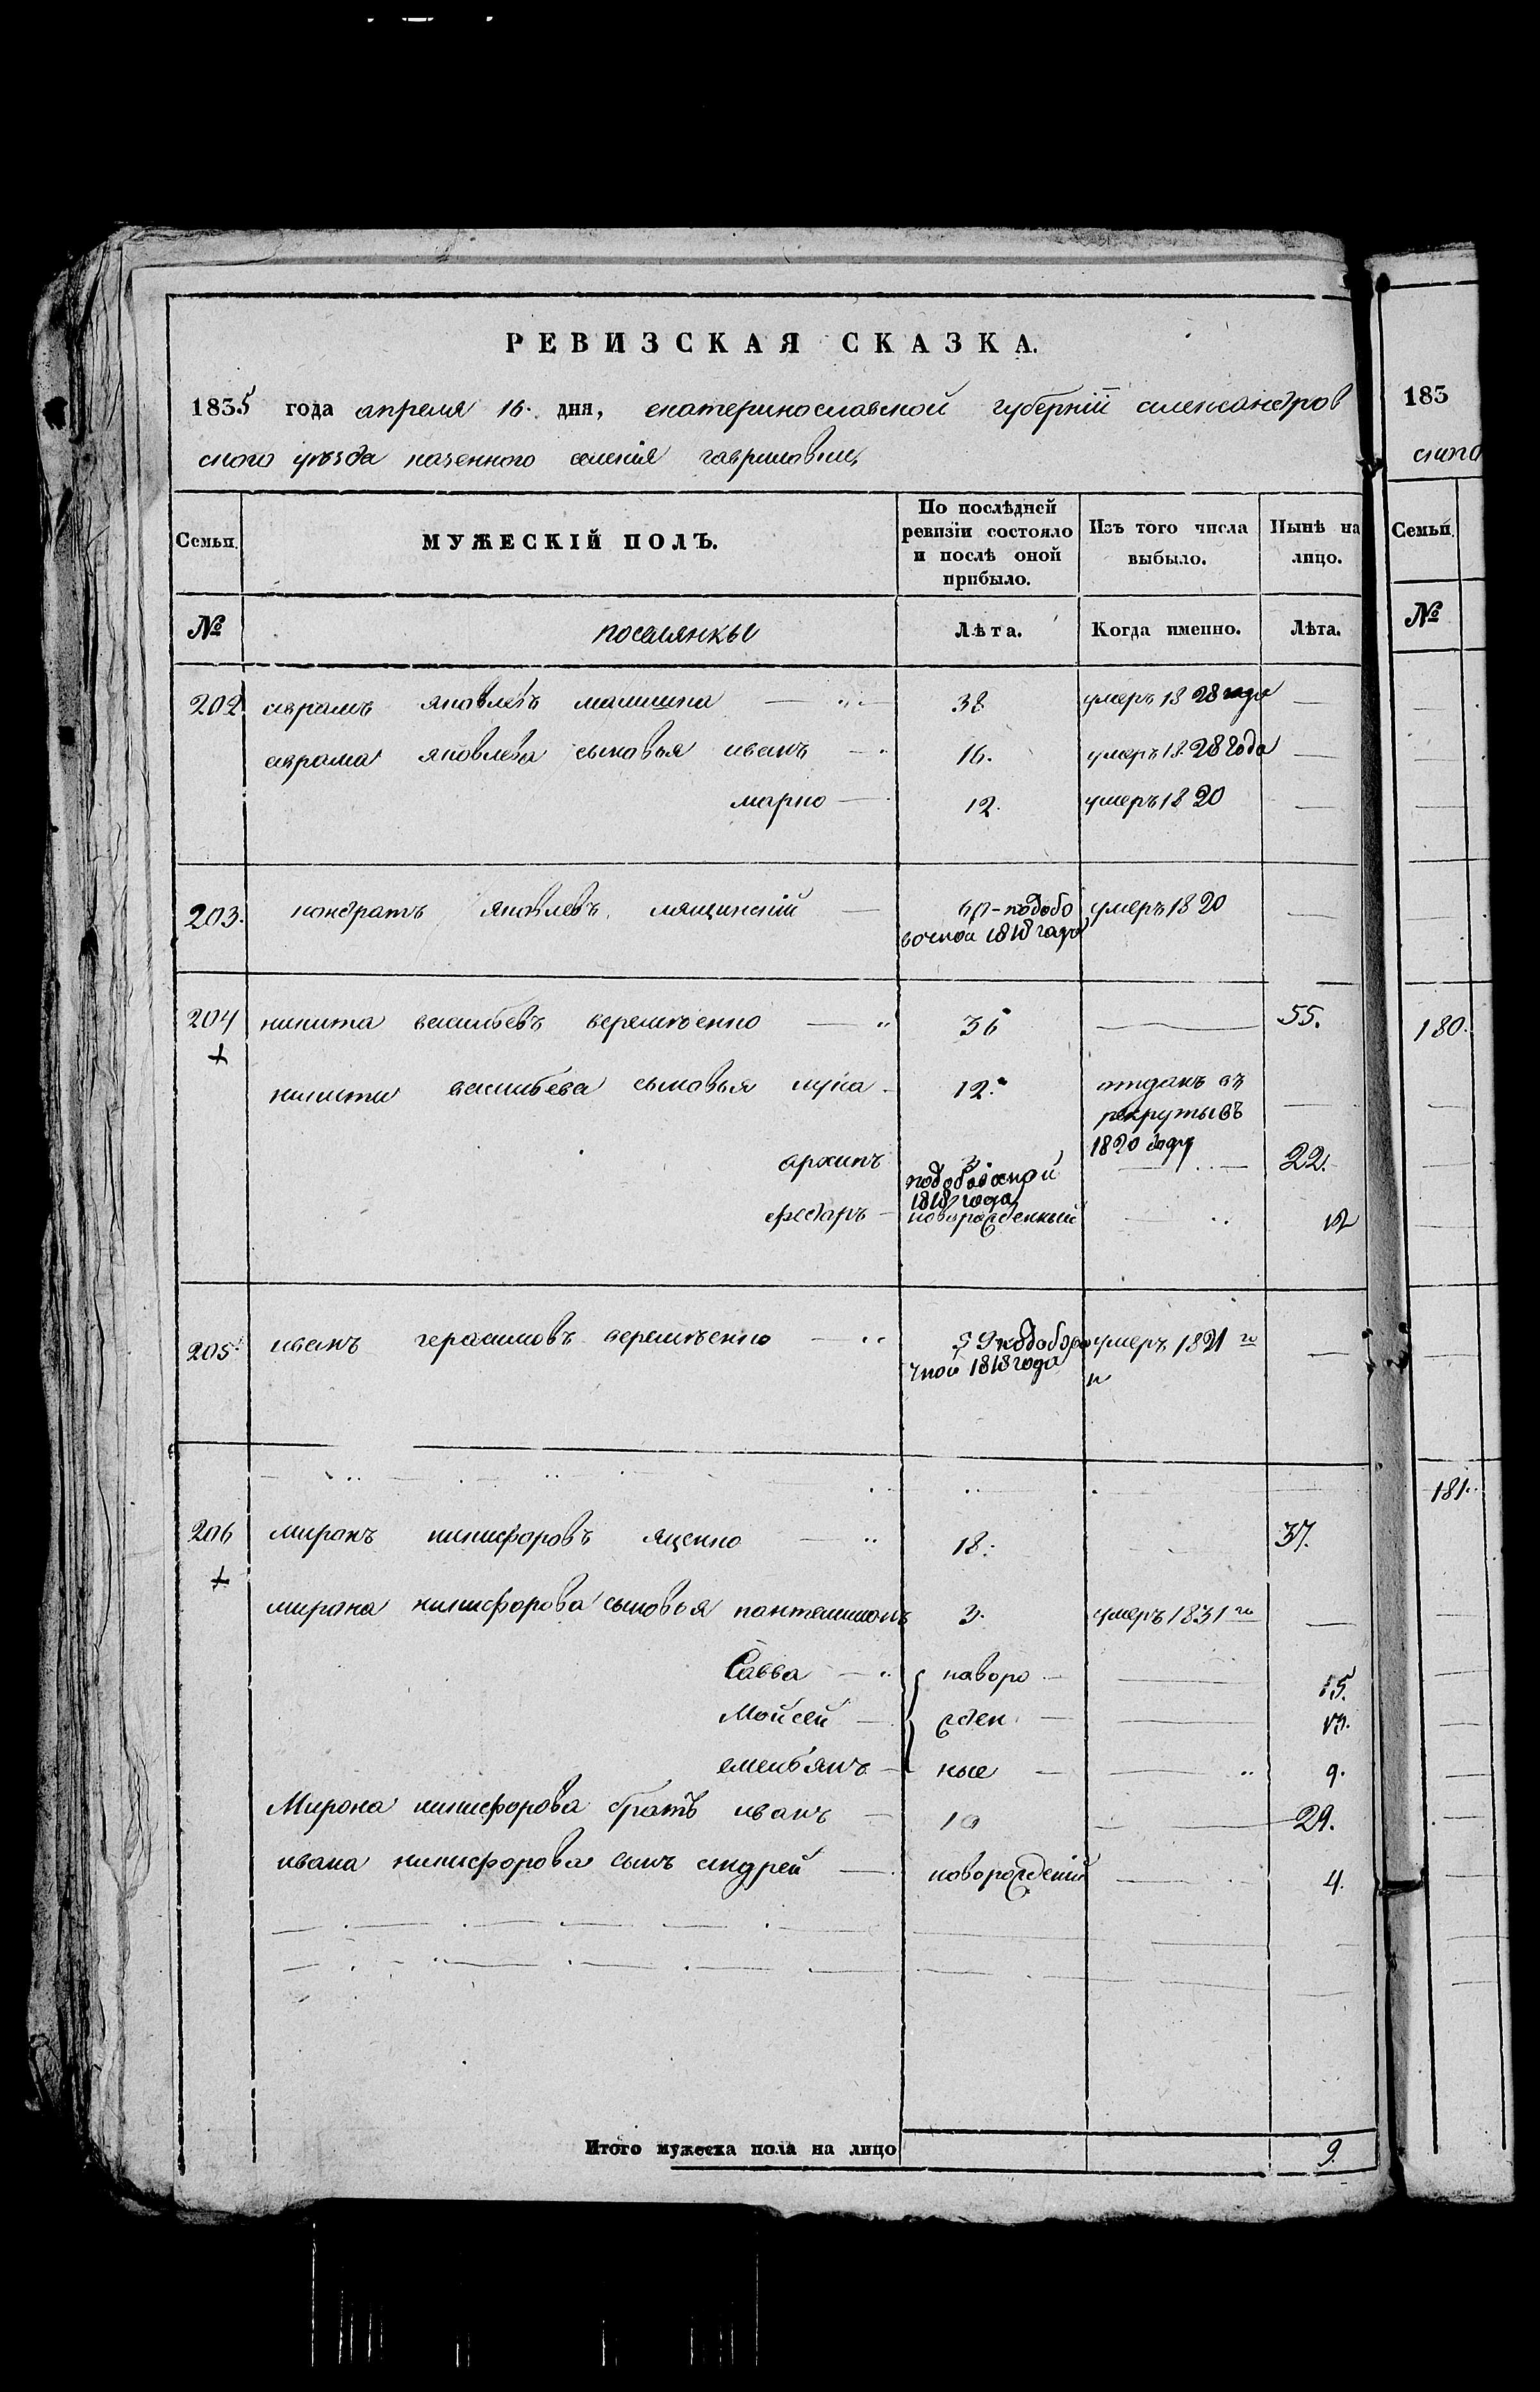 РЕВИЗСКАЯ СКАЗКА.
1835 года апреля 16. дня, екатеринославской губернїи александров
ского уѣзда казенного селенїя гавриловки
Семьи.
МУЖЕСКІЙ ПОЛЪ.
По послѣдней ревизіи состояло и послѣ оной прибыло.
Изъ того числа выбыло.
Нынѣ на лицо.
№ поселянкы Лѣта. Когда именно. Лѣта.
202 аврамъ яковлевъ 38 умеръ 1828 года —
аврама яковлева сыновья иванъ 16. умеръ 1828 года —
марко 12. умеръ 1820 —
203. кондратъ яковлевъ 60 - подобо умеръ 1820 —
вочной 1818 года
204 никита васильевъ веремѣенко 36 — 55.
+
никиты васильева сыновья лука 12. отданъ въ —
рекруты въ
1820 году
архипъ 3 — 22.
1818 года
федоръ новорожденный — 12
205. иванъ герасимовъ веремѣенко 59 подоборо умеръ 1821 го —
чной 1818 года
206 миронъ никифоровъ яценко 18. — 37.
+
мирона никифорова сыновья пантелимонъ 3. умеръ 1831 го —
Савва — новоро — 15.
Мойсей — жден — 13.
емельянъ — ные — 9.
Мирона никифорова братъ иванъ 10 — 29.
ивана никифорова сынъ андрей — новорожденій — 4.
Итого мужеска пола на лицо 9.
183
ского
Семьи.
№
180.
181.